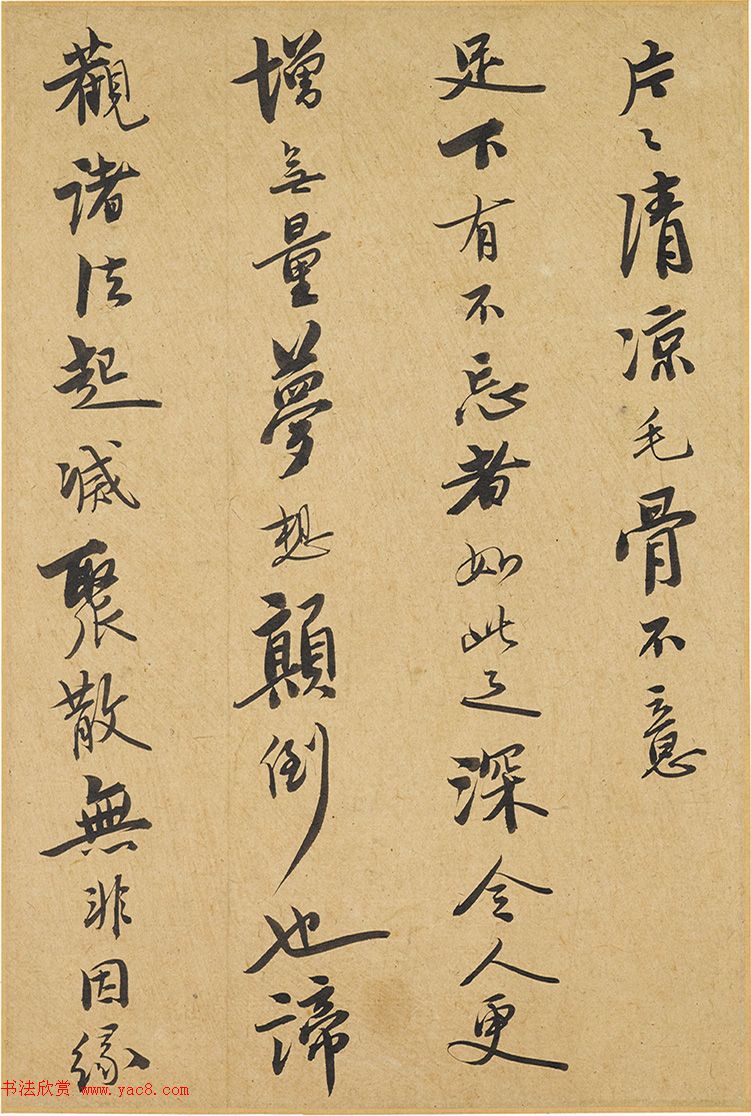 片〻清凉毛骨不意
足下有不忘者如此之深令人更
增無量夢想顛倒也諦
觀諸法起滅聚散無非因緣
书法欣赏 www.yac8.com